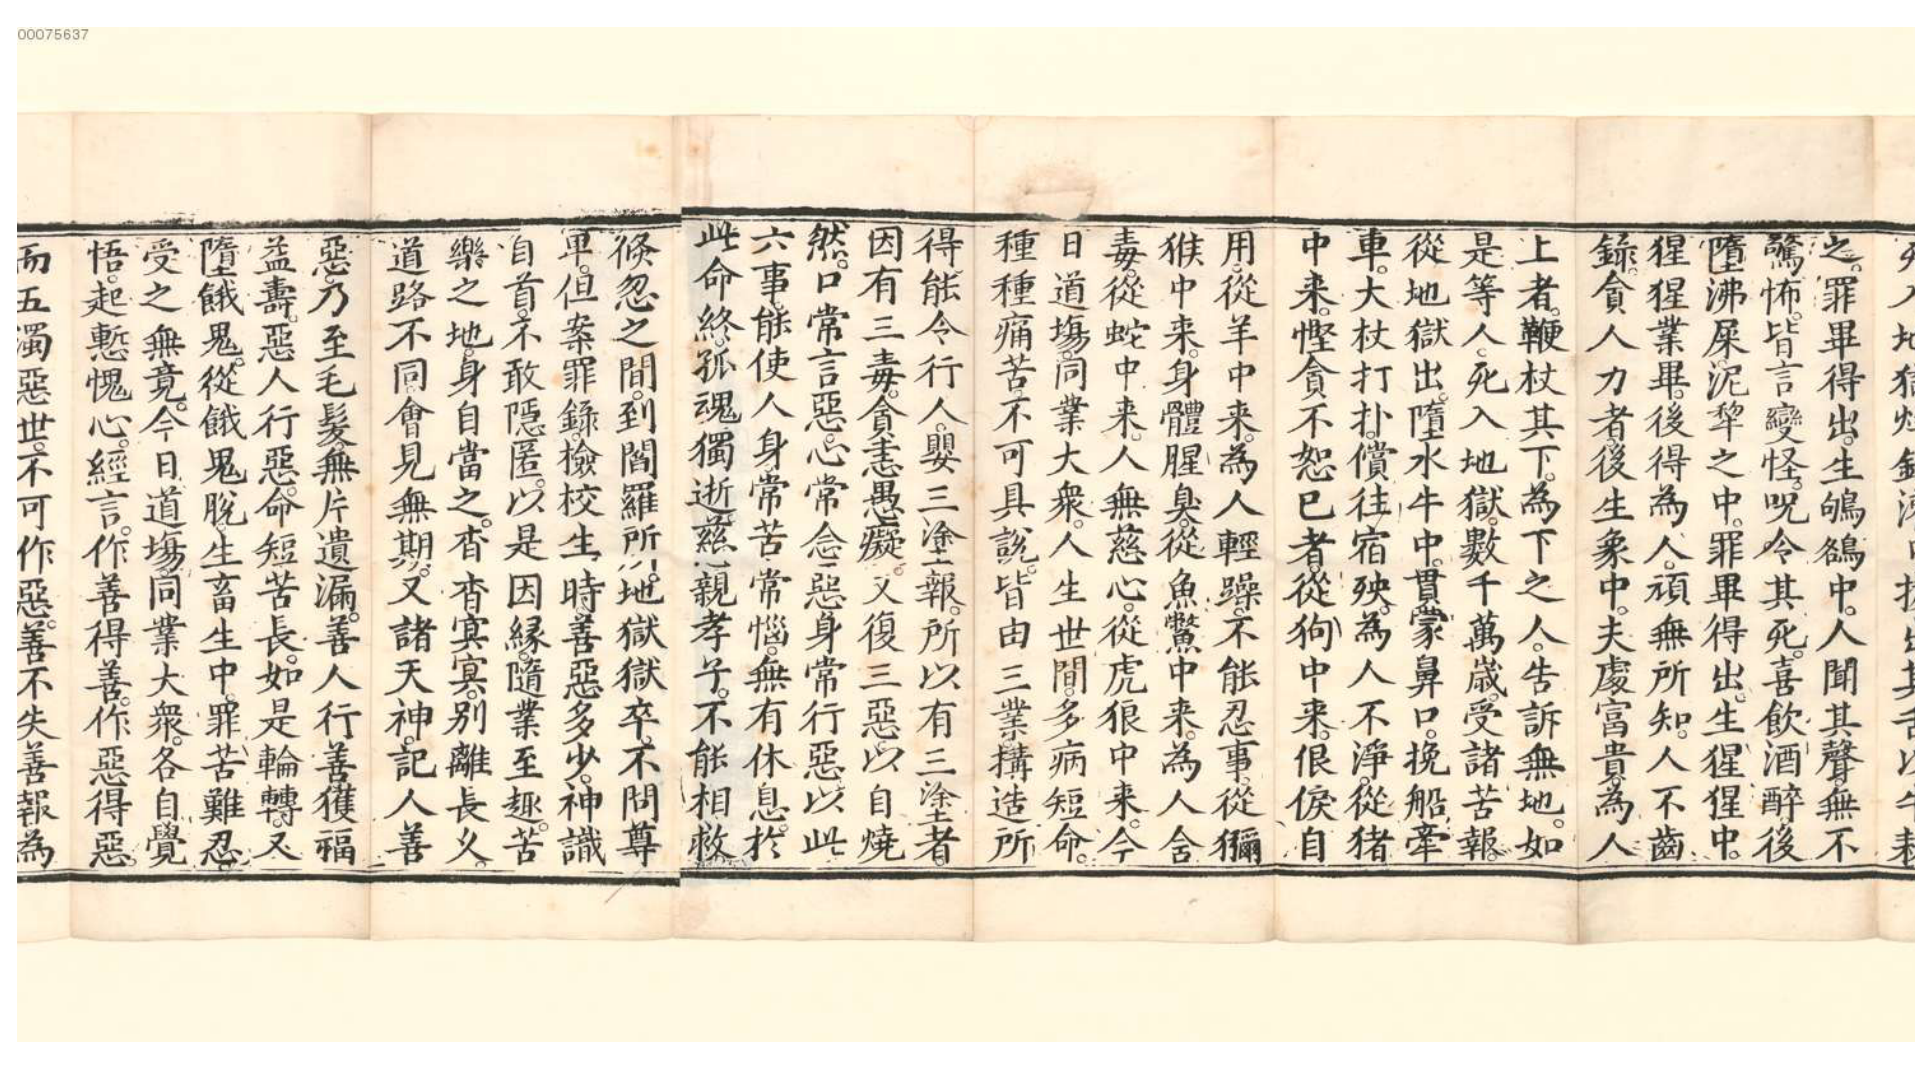 00075637
死入地獄出其舌以牛耕
之。罪畢得出。生鴝鵅中。人聞其聲無不
驚怖。皆言變怪。呪令其死。喜飲酒醉。後
墮沸屎泥犂之中。罪畢得出。生猩猩中。
猩猩業畢。後得為人。頑無所知。人不齒
錄。貪人力者。後生象中。夫處富貴。為人
上者。鞭杖其下。為下之人。告訴無地。如
是等人。死入地獄。數千萬歲。受諸苦報。
從地獄出。墮水牛中。貫䝉鼻口。挽船牽
車。大杖打扑。償往宿殃。為人不淨。從猪
中來。慳貪不恕己者。從狗中來。佷戾自
用。從羊中來。為人輕躁。不能忍事。從獼
猴中來。身體腥臭。從魚鱉中來。為人含
毒。從蛇中來。人無慈心。從虎狼中來。今
日道場。同業大衆。人生世間。多病短命。
種種痛苦。不可具說。皆由三業搆造所
得。能令行人。嬰三塗報。所以有三塗者。
因有三毒。貪恚愚癡。又復三惡。以自燒
然。口常言惡。心常念惡。身常行惡。以此
六事。能使人身。常苦常惱。無有休息。於
此命終。孤魂獨逝。慈親孝子。不能相救
倐忽之間。到閻羅所。地獄獄卒。不問尊
卑。但案罪錄。檢校生時。善惡多少。神識
自首。不敢隱匿。以是因緣。隨業至趣。苦
樂之地。身自當之。杳杳冥冥。別離長乆。
道路不同。會見無期。又諸天神。記人善
惡。乃至毛髮。無片遺漏。善人行善。獲福
益壽。惡人行惡。命短苦長。如是輪轉。又
墮餓鬼。從餓鬼脫。生畜生中。罪苦難忍。
受之無竟。今日道場。同業大衆。各自覺
悟。起慙愧心。經言。作善得善。作惡得惡。
而五濁惡世。不可作惡。善不失善報。為